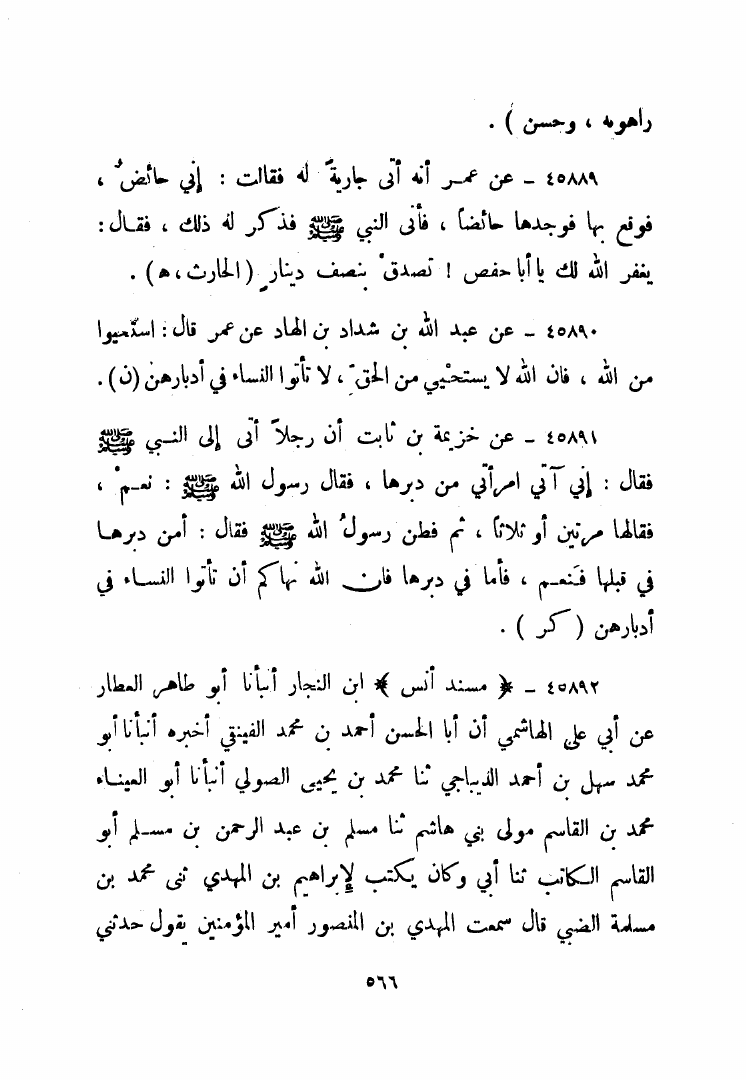 راهويه ، وحسن ) .
٤٥٨٨٩ ـ عن عمـر أنه أتى جاريةً له فقالت : إني حائضٌ ،
فوقع بها فوجدها حائضاً ، فأتى النبي ﷺ فذكر له ذلك ، فقـال :
يغفر الله لك يا أبا حفص ! تصدقْ بنصف دينارٍ ( الحارث ، ه‍ ) .
٤٥٨٩٠ ـ عن عبد الله بن شداد بن الهاد عن عمر قال : استحيوا
من الله ، فان الله لا يستحْيي من الحقِّ ، لا تأتوا النساء في أدبارهن ( ن ) .
٤٥٨٩١ ـ عن خزيمة بن ثابت أن رجلاً أتى إلى النـبي ﷺ
فقال : إني آتي امرأتي من دبرها ، فقال رسول الله ﷺ : نعـمْ ،
فقالها مرتين أو ثلاثاً ، ثم فطن رسولُ الله ﷺ فقال : أمن دبرهـا
في قبلها فـنعـم ، فأما في دبرها فان الله نهاكم أن تأتوا النسـاء في
أدبارهن ( كر ) .
٤٥٨٩٢ ـ ﴿ مسند أنس ﴾ ابن النجار أنبأنا أبو طاهر العطار
عن أبي علي الهاشمي أن أبا الحسن أحمد بن محمد الفينقي أخبره أنبأنا أبو
محمد سهل بن أحمد الديباجي ثنا محمد بن يحيى الصولي أنبأنا أبو العينـاء
محمد بن القاسم مولى بني هاشم ثنا مسلم بن عبد الرحمن بن مسـلم أبو
القاسم الـكاتب ثنا أبي وكان يكتب لإبراهيم بن المهدي ثنى محمد بن
مسلمة الضبي قال سمعت المهدي بن المنصور أمير المؤمنين يقول حدثني
٥٦٦